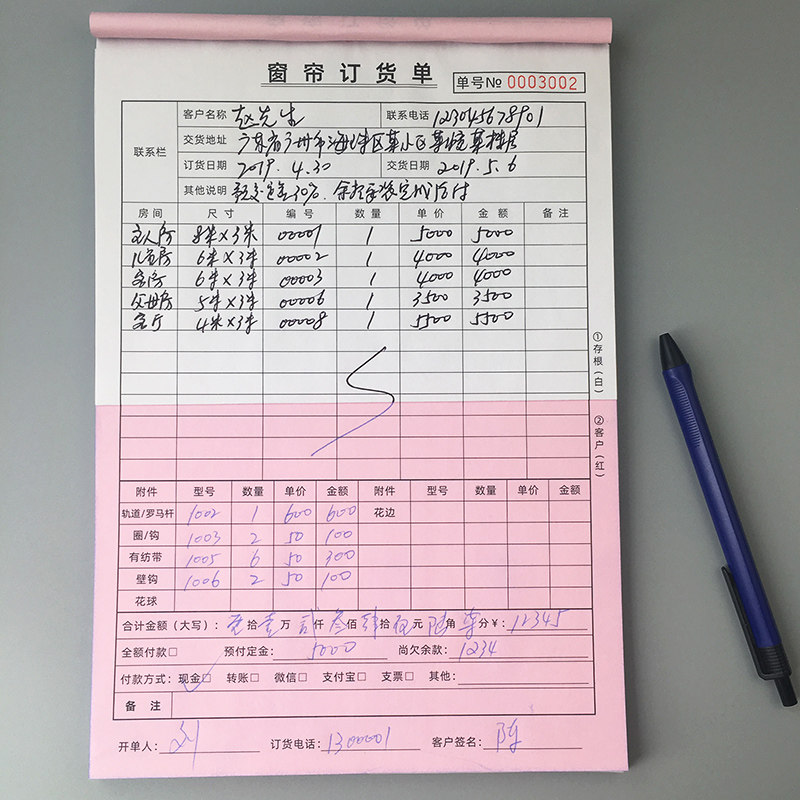 窗帘订货单 单号№ 0003002
联系栏 客户名称 赵先生 联系电话 123045678901
交货地址 广东省广州市海珠区某小区某栋某楼层
订货日期 2019.4.30 交货日期 2019.5.6
其他说明 预交定金30%,余款安装完成后付
房间 尺寸 编号 数量 单价 金额 备注
主人房 8米×3米 00001 1 5000 5000
儿童房 6米×3米 00002 1 4000 4000
客房 6米×3米 00003 1 4000 4000
父母房 5米×3米 00006 1 3500 3500
客厅 4米×3米 00008 1 5500 5500
①存根(白)
②客户(红)
附件 型号 数量 单价 金额 附件 型号 数量 单价 金额
轨道/罗马杆 1002 1 600 600 花边
圈/钩 1003 2 50 100
有纺带 1005 6 50 300
壁钩 1006 2 50 100
花球
合计金额(大写): 拾壹万贰仟叁佰肆拾伍元陆角零分¥:12345
全额付款□ 预付定金: 5000 尚欠余款: 1234
付款方式: 现金□ 转账□ 微信□ 支付宝□ 支票□ 其他:
备注
开单人: 刘 订货电话: 1300001 客户签名: 陈